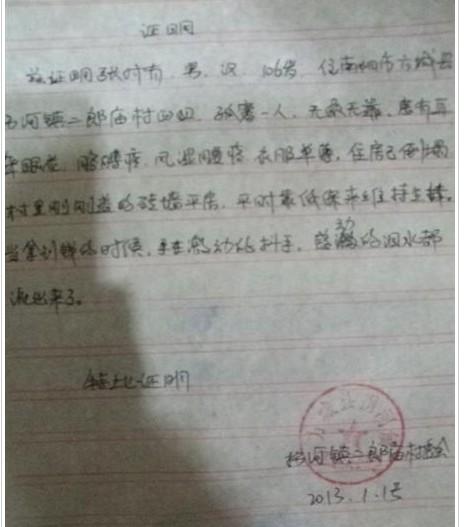 证明
兹证明张时有 男、汉、106岁 住南阳市方城县
河镇二郎庙村四组、孤寡一人、无亲无靠、患有耳
聋眼花、风湿腰疼、衣服单薄、住房已倒塌
村里刚刚盖的砖墙平房、平时靠低保来维持生
当拿到钱的时候、手在激动的抖手、感动的泪水都
流出来了。
特此证明
河镇二郎庙村委会
2013.1.1号